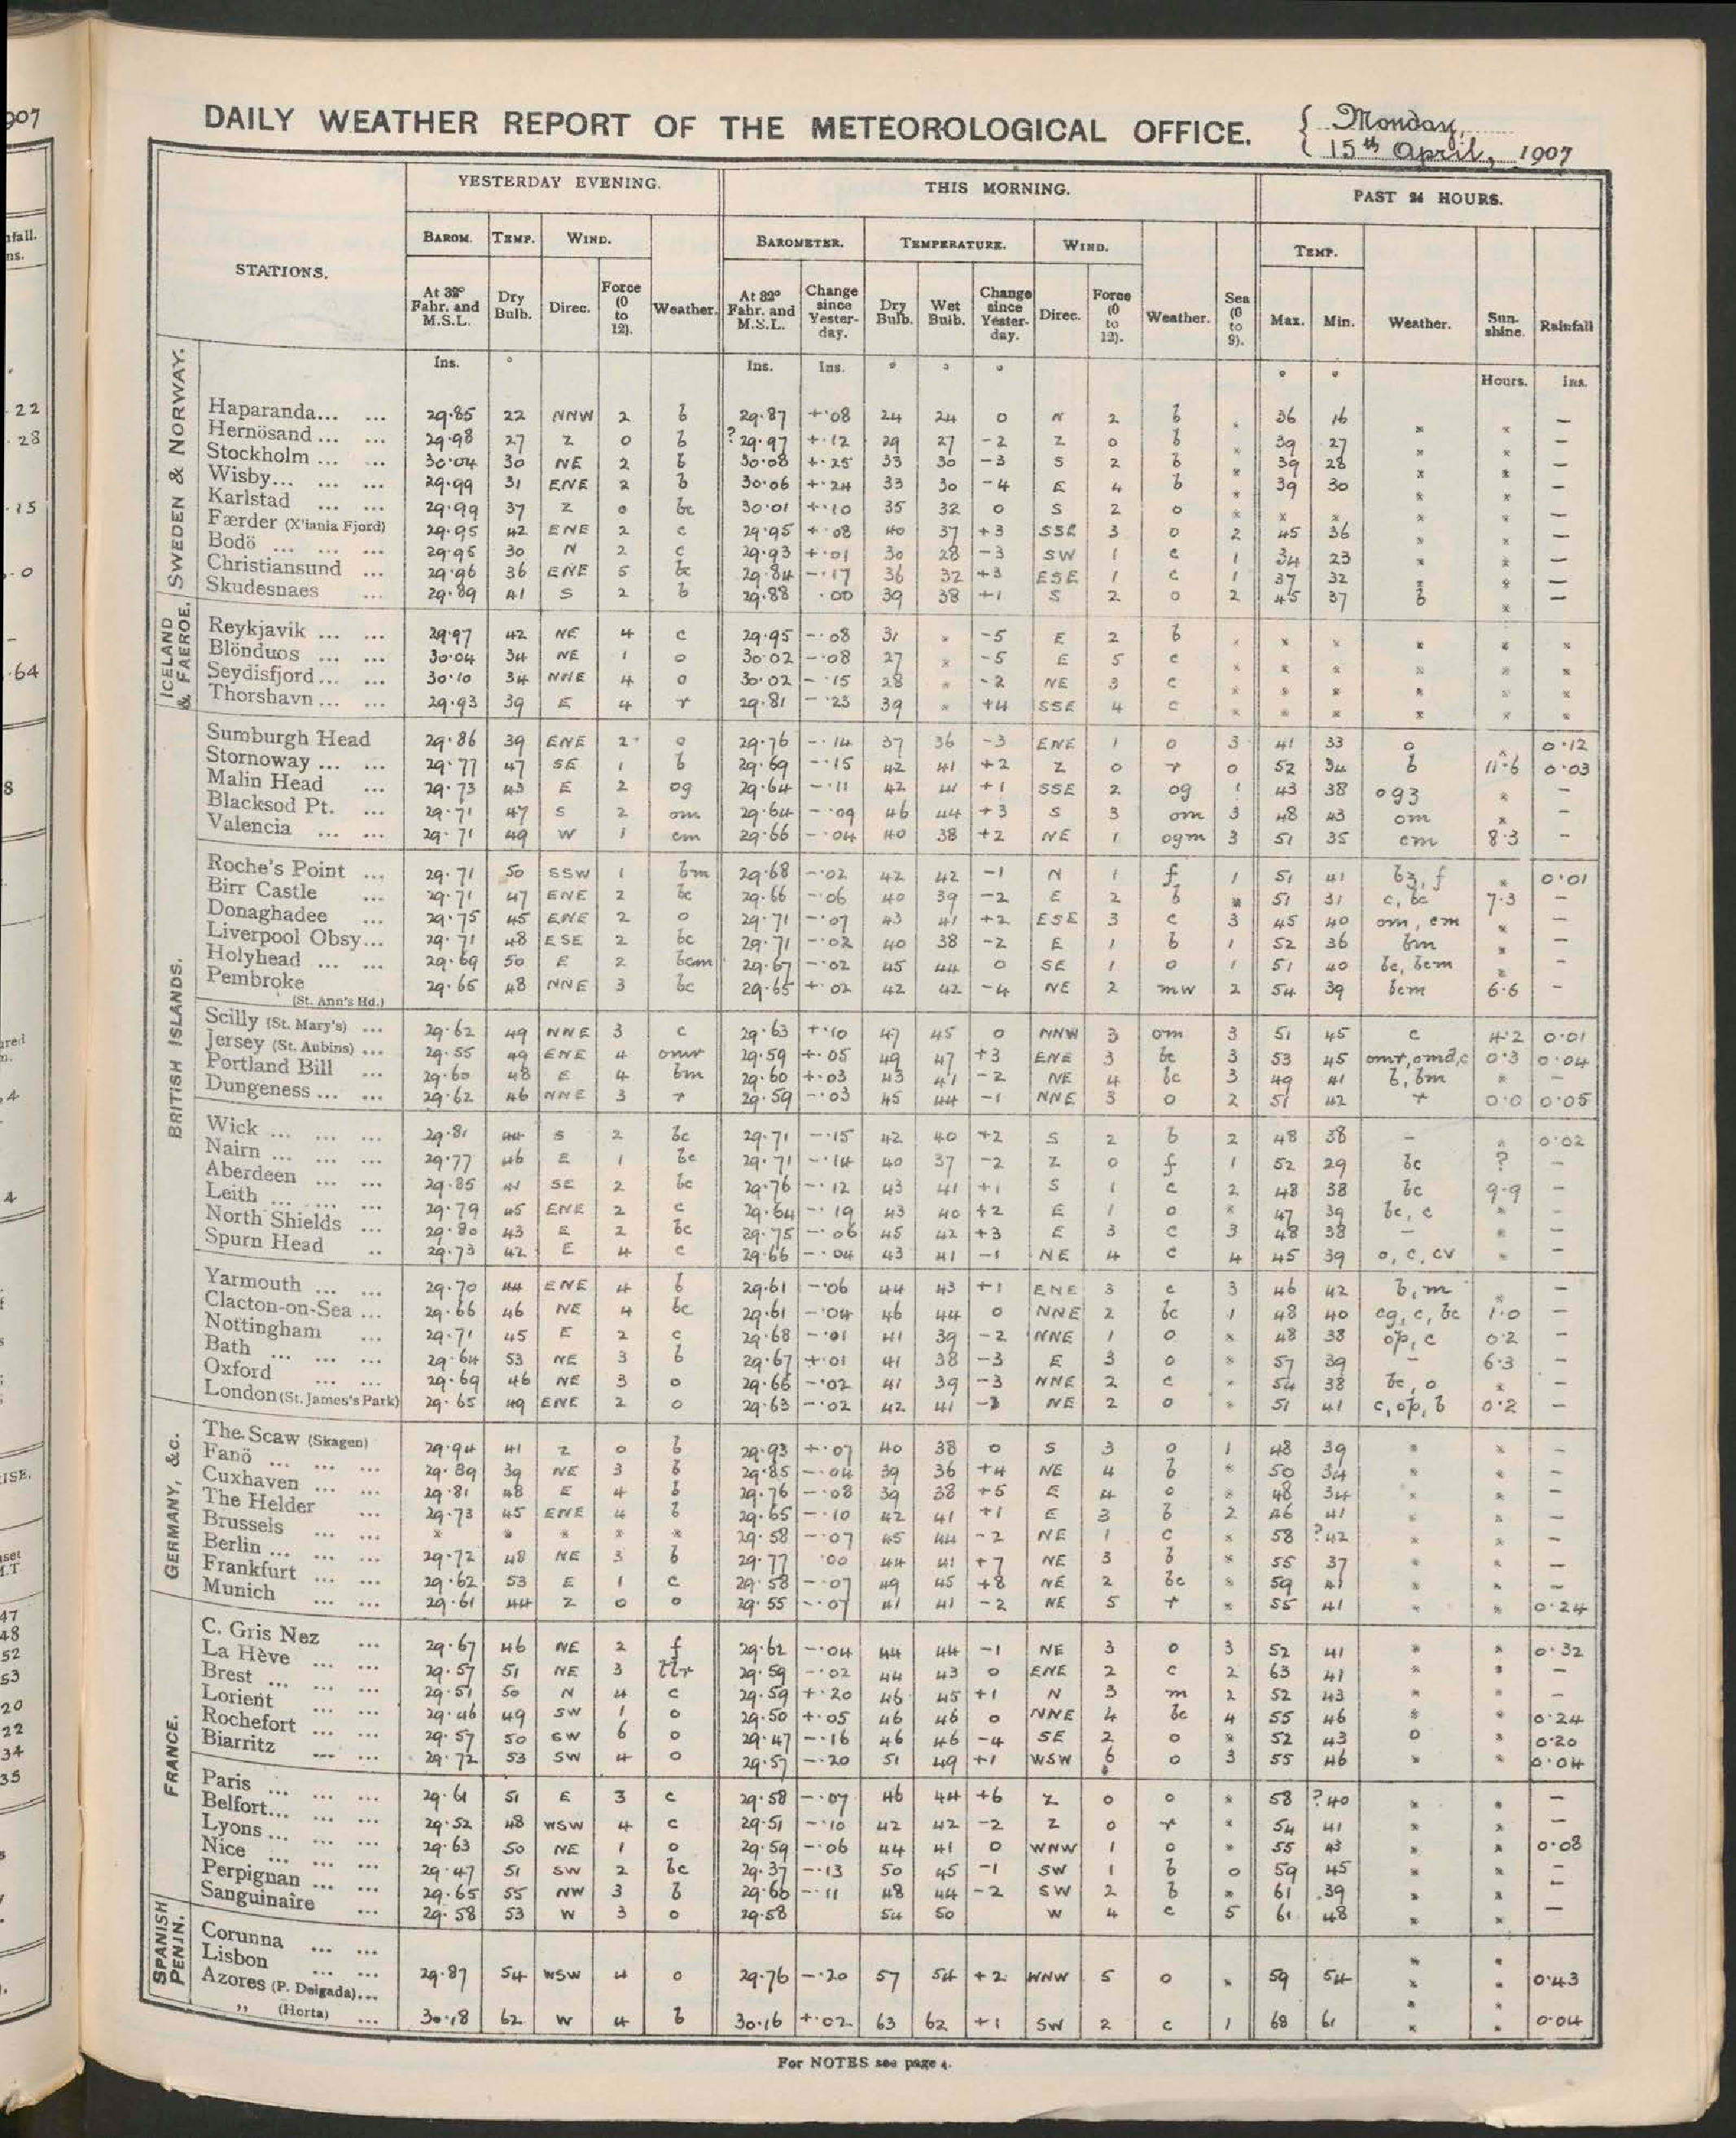 907
DAILY WEATHER REPORT OF THE METEOROLOGICAL OFFICE. { Monday, 15th April, 1907
YESTERDAY EVENING. THIS MORNING. PAST 24 HOURS.
BAROM. TEMP. WIND. BAROMETER. TEMPERATURE. WIND. TEMP.
STATIONS. At 32° Fahr. and M.S.L. Dry Bulb. Direc. Force (0 to 12). Weather. At 32° Fahr. and M.S.L. Change since Yesterday. Dry Bulb. Wet Bulb. Change since Yesterday. Direc. Force (0 to 12). Weather. Sea (0 to 9). Max. Min. Weather. Sunshine. Rainfall
Ins. ° Ins. Ins. ° ° ° ° ° Hours. Ins.
SWEDEN & NORWAY.
Haparanda... ... 29.85 22 NNW 2 b 29.87 +.08 24 24 0 N 2 b * 36 16 * * —
Hernösand ... ... 29.98 27 Z 0 b ?29.97 +.12 29 27 -2 Z 0 b * 39 27 * * —
Stockholm ... ... 30.04 30 NE 2 b 30.08 +.25 33 30 -3 S 2 b * 39 28 * * —
Wisby... ... ... 29.99 31 ENE 2 b 30.06 +.24 33 30 -4 E 4 b * 39 30 * * —
Karlstad ... ... 29.99 37 Z 0 bc 30.01 +.10 35 32 0 S 2 o * * * * * —
Færder (X'iania Fjord) 29.95 42 ENE 2 c 29.95 +.08 40 37 +3 SSE 3 o 2 45 36 * * —
Bodö ... ... ... 29.95 30 N 2 c 29.93 +.01 30 28 -3 SW 1 c 1 34 23 * * —
Christiansund ... 29.96 36 ENE 5 bc 29.84 -.17 36 32 +3 ESE 1 c 1 37 32 * * —
Skudesnaes ... 29.89 41 S 2 b 29.88 .00 39 38 +1 S 2 o 2 45 37 b * —
ICELAND & FAEROE.
Reykjavik ... ... 29.97 42 NE 4 c 29.95 -.08 31 * -5 E 2 b * * * * * *
Blönduos ... ... 30.04 34 NE 1 o 30.02 -.08 27 * -5 E 5 c * * * * * *
Seydisfjord... ... 30.10 34 NNE 4 o 30.02 -.15 28 * -2 NE 3 c * * * * * *
Thorshavn ... ... 29.93 39 E 4 r 29.81 -.23 39 * +4 SSE 4 c * * * * * *
BRITISH ISLANDS.
Sumburgh Head 29.86 39 ENE 2 o 29.76 -.14 37 36 -3 ENE 1 o 3 41 33 o * 0.12
Stornoway ... ... 29.77 47 SE 1 b 29.69 -.15 42 41 +2 Z 0 r 0 52 34 b 11.6 0.03
Malin Head ... 29.73 43 E 2 og 29.64 -.11 42 41 +1 SSE 2 og 1 43 38 og3 * —
Blacksod Pt. ... 29.71 47 S 2 om 29.64 -.09 46 44 +3 S 3 om 3 48 43 om * —
Valencia ... ... 29.71 49 W 1 cm 29.66 -.04 40 38 +2 NE 1 ogm 3 51 35 cm 8.3 —
Roche's Point ... 29.71 50 SSW 1 bm 29.68 -.02 42 42 -1 N 1 f 1 51 41 bz, f * 0.01
Birr Castle ... 29.71 47 ENE 2 bc 29.66 -.06 40 39 -2 E 2 b * 51 31 c, bc 7.3 —
Donaghadee ... 29.75 45 ENE 2 o 29.71 -.07 43 41 +2 ESE 3 c 3 45 40 om, cm * —
Liverpool Obsy... 29.71 48 ESE 2 bc 29.71 -.02 40 38 -2 E 1 b 1 52 36 bm * —
Holyhead ... ... 29.69 50 E 2 bcm 29.67 -.02 45 44 0 SE 1 o 1 51 40 bc, bcm * —
Pembroke (St. Ann's Hd.) 29.65 48 NNE 3 bc 29.65 +.02 42 42 -4 NE 2 mw 2 54 39 bcm 6.6 —
Scilly (St. Mary's) ... 29.62 49 NNE 3 c 29.63 +.10 47 45 0 NNW 3 om 3 51 45 c 4.2 0.01
Jersey (St. Aubins) ... 29.55 49 ENE 4 omr 29.59 +.05 49 47 +3 ENE 3 bc 3 53 45 omr, omd, c 0.3 0.04
Portland Bill ... 29.60 48 E 4 bm 29.60 +.03 43 41 -2 NE 4 bc 3 49 41 b, bm * —
Dungeness ... ... 29.62 46 NNE 3 r 29.59 -.03 45 44 -1 NNE 3 o 2 51 42 r 0.0 0.05
Wick ... ... ... 29.81 44 S 2 bc 29.71 -.15 42 40 +2 S 2 b 2 48 38 — * 0.02
Nairn ... ... ... 29.77 46 E 1 bc 29.71 -.14 40 37 -2 Z 0 f 1 52 29 bc ? —
Aberdeen ... ... 29.85 41 SE 2 bc 29.76 -.12 43 41 +1 S 1 c 2 48 38 bc 9.9 —
Leith ... ... ... 29.79 45 ENE 2 c 29.64 -.19 43 40 +2 E 1 o * 47 39 bc, c * —
North Shields ... 29.80 43 E 2 bc 29.75 -.06 45 42 +3 E 3 c 3 48 38 — * —
Spurn Head .. 29.73 42 E 4 c 29.66 -.04 43 41 -1 NE 4 c 4 45 39 o, c, cv * —
Yarmouth ... ... 29.70 44 ENE 4 b 29.61 -.06 44 43 +1 ENE 3 c 3 46 42 b, m * —
Clacton-on-Sea ... 29.66 46 NE 4 bc 29.61 -.04 46 44 0 NNE 2 bc 1 48 40 cg, c, bc 1.0 —
Nottingham ... 29.71 45 E 2 c 29.68 -.01 41 39 -2 NNE 1 o * 48 38 op, c 0.2 —
Bath ... ... ... 29.64 53 NE 3 b 29.67 +.01 41 38 -3 E 3 o * 57 39 — 6.3 —
Oxford ... ... 29.69 46 NE 3 o 29.66 -.02 41 39 -3 NNE 2 c * 54 38 bc, o * —
London (St. James's Park) 29.65 49 ENE 2 o 29.63 -.02 42 41 NE 2 o * 51 41 c, op, b 0.2 —
GERMANY, &c.
The Scaw (Skagen) 29.94 41 Z 0 b 29.93 +.07 40 38 0 S 3 o 1 48 39 * * —
Fanö ... ... ... 29.89 39 NE 3 b 29.85 -.04 39 36 +4 NE 4 b * 50 34 * * —
Cuxhaven ... ... 29.81 48 E 4 b 29.76 -.08 39 38 +5 E 4 o * 48 34 * * —
The Helder ... 29.73 45 ENE 4 b 29.65 -.10 42 41 +1 E 3 b 2 46 41 * * —
Brussels ... ... * * * * * 29.58 -.07 45 44 -2 NE 1 c * 58 ?42 * * —
Berlin ... ... ... 29.72 48 NE 3 b 29.77 .00 44 41 +7 NE 3 b * 55 37 * * —
Frankfurt ... ... 29.62 53 E 1 c 29.58 -.07 49 45 +8 NE 2 bc * 59 41 * * —
Munich ... ... 29.61 44 Z 0 o 29.55 -.07 41 41 -2 NE 5 r * 55 41 * * 0.24
FRANCE.
C. Gris Nez ... 29.67 46 NE 2 f 29.62 -.04 44 44 -1 NE 3 o 3 52 41 * * 0.32
La Hève ... ... 29.57 51 NE 3 tlr 29.59 -.02 44 43 0 ENE 2 c 2 63 41 * * —
Brest ... ... ... 29.51 50 N 4 c 29.59 +.20 46 45 +1 N 3 m 2 52 43 * * —
Lorient ... ... 29.46 49 SW 1 o 29.50 +.05 46 46 0 NNE 4 bc 4 55 46 * * 0.24
Rochefort ... ... 29.57 50 SW 6 o 29.47 -.16 46 46 -4 SE 2 o * 52 43 o * 0.20
Biarritz ... ... 29.72 53 SW 4 o 29.57 -.20 51 49 +1 WSW 6 o 3 55 46 * * 0.04
Paris ... ... ... 29.61 51 E 3 c 29.58 -.07 46 44 +6 Z 0 o * 58 ?40 * * —
Belfort... ... ... 29.52 48 WSW 4 c 29.51 -.10 42 42 -2 Z 0 r * 54 41 * * —
Lyons ... ... ... 29.63 50 NE 1 o 29.59 -.06 44 41 0 WNW 1 o * 55 43 * * 0.08
Nice ... ... ... 29.47 51 SW 2 bc 29.37 -.13 50 45 -1 SW 1 b 0 59 45 * * —
Perpignan ... ... 29.65 55 NW 3 b 29.66 -.11 48 44 -2 SW 2 b * 61 39 * * —
Sanguinaire ... 29.58 53 W 3 o 29.58 54 50 W 4 c 5 61 48 * * —
SPANISH PENIN.
Corunna ... ... * *
Lisbon ... ... 29.87 54 WSW 4 o 29.76 -.20 57 54 +2 WNW 5 o * 59 54 * * 0.43
Azores (P. Delgada)... * *
,, (Horta) ... 30.18 62 W 4 b 30.16 +.02 63 62 +1 SW 2 c 1 68 61 * * 0.04
For NOTES see page 4.